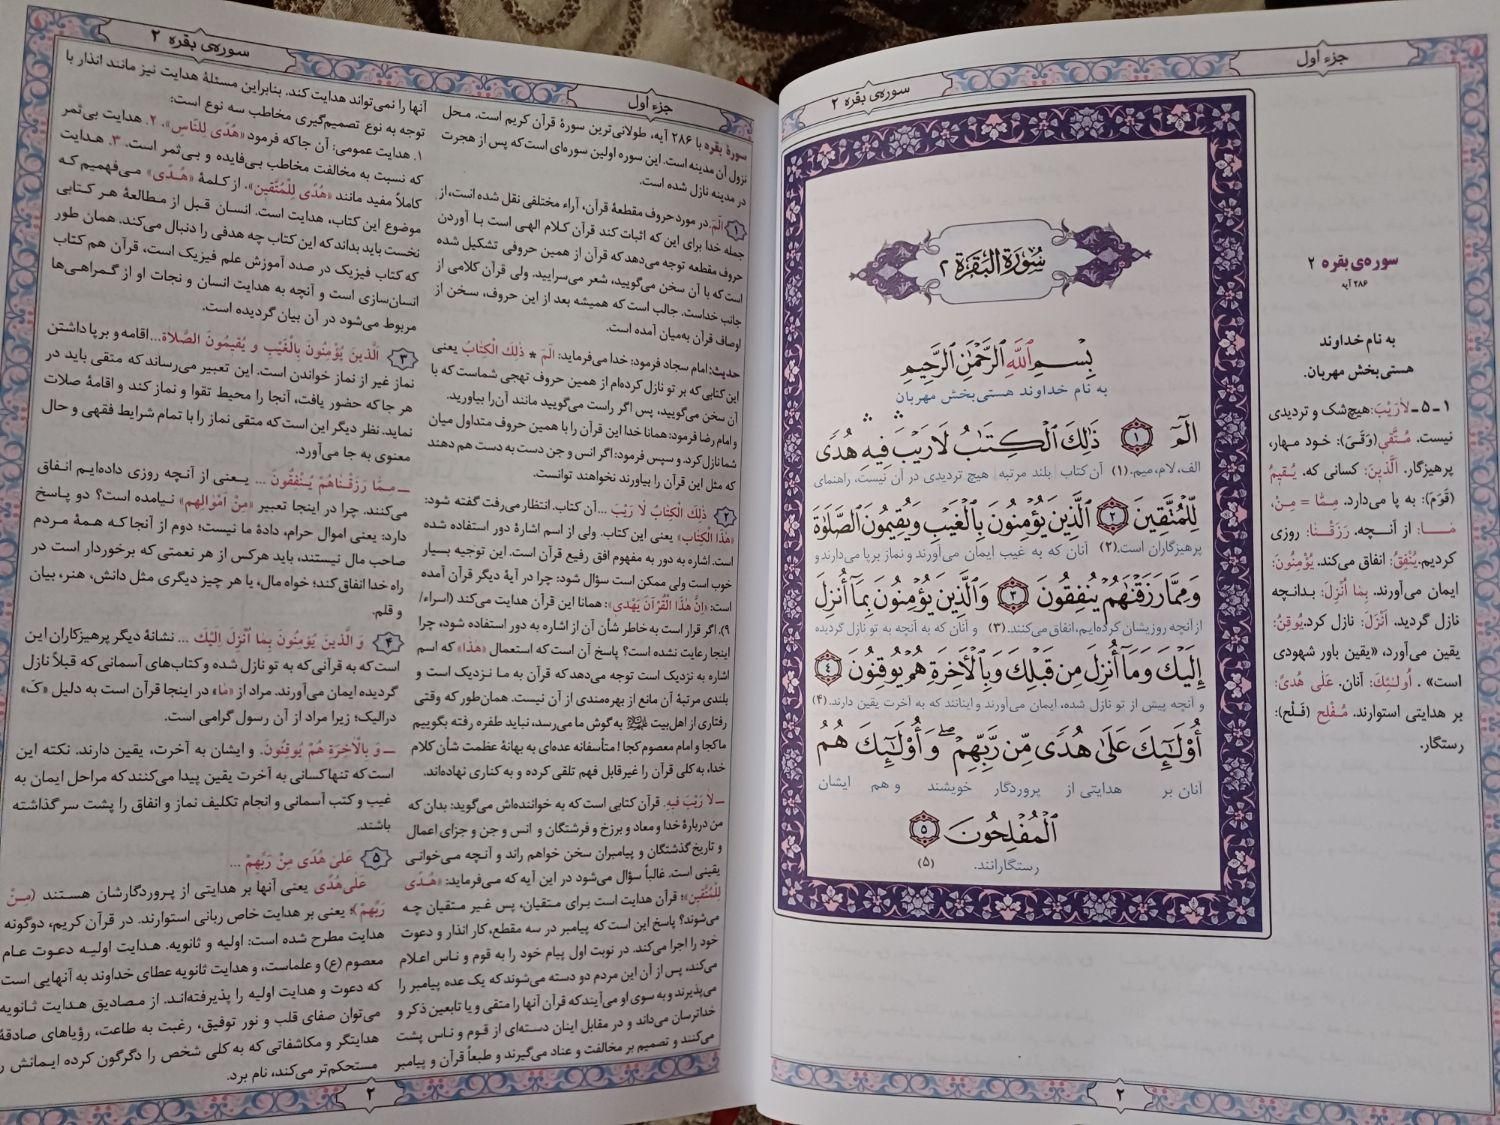 جزء اول
سوره‌ی بقره ۲
سُورَةُ البَقَرَة ۲
بِسْمِ اللَّهِ الرَّحْمَٰنِ الرَّحِيمِ
به نام خداوند هستی‌بخش مهربان
الٓمٓ ۱ ذَٰلِكَ ٱلْكِتَٰبُ لَا رَيْبَ ۛ فِيهِ ۛ هُدًى
الف، لام، میم. (۱) آن کتاب بلند مرتبه هیچ تردیدی در آن نیست، راهنمای
لِّلْمُتَّقِينَ ۲ ٱلَّذِينَ يُؤْمِنُونَ بِٱلْغَيْبِ وَيُقِيمُونَ ٱلصَّلَوٰةَ
پرهیزگاران است. (۲) آنان که به غیب ایمان می‌آورند و نماز برپا می‌دارند و
وَمِمَّا رَزَقْنَٰهُمْ يُنفِقُونَ ۳ وَٱلَّذِينَ يُؤْمِنُونَ بِمَآ أُنزِلَ
از آنچه روزیشان کرده‌ایم، انفاق می‌کنند. (۳) و آنان که به آنچه به تو نازل گردیده
إِلَيْكَ وَمَآ أُنزِلَ مِن قَبْلِكَ وَبِٱلْأَخِرَةِ هُمْ يُوقِنُونَ ۴
و آنچه پیش از تو نازل شده، ایمان می‌آورند و اینانند که به آخرت یقین دارند. (۴)
أُو۟لَٰٓئِكَ عَلَىٰ هُدًى مِّن رَّبِّهِمْ ۖ وَأُو۟لَٰٓئِكَ هُمُ
آنان بر هدایتی از پروردگار خویشند و هم ایشان
ٱلْمُفْلِحُونَ ۵
رستگارانند. (۵)
سوره‌ی بقره ۲
۲۸۶ آیه
به نام خداوند
هستی‌بخش مهربان.
۱ـ۵ـ لاٰرَیْبَ: هیچ‌شک و تردیدی
نیست. مُتَّقي (وَقَیَ): خود مهار،
پرهیزگار. اَلَّذینَ: کسانی که. یُقیمُ
(قَوَمَ): به پا می‌دارد. مِمّٰا = مِنْ،
مٰا: از آنچه. رَزَقْنٰا: روزی
کردیم. یُنْفِقُ: انفاق می‌کند. یُؤْمِنُونَ:
ایمان می‌آورند. بِمٰا اُنْزِلَ: بدانچه
نازل گردید. اَنْزَلَ: نازل کرد. یُوقِنُ:
یقین می‌آورد، «یقین باور شهودی
است». اُولٰئِكَ: آنان. عَلیٰ هُدیً:
بر هدایتی استوارند. مُفْلح (فَلَحَ):
رستگار.
۲
جزء اول
سوره‌ی بقره ۲
سورهٔ بقره با ۲۸۶ آیه، طولانی‌ترین سورهٔ قرآن کریم است. محل
نزول آن مدینه است. این سوره اولین سوره‌ای است که پس از هجرت
در مدینه نازل شده است.
۱ الٓمٓ. در مورد حروف مقطعهٔ قرآن، آراء مختلفی نقل شده است، از
جمله خدا برای این که اثبات کند قرآن کلام الهی است با آوردن
حروف مقطعه توجه می‌دهد که قرآن از همین حروفی تشکیل شده
است که با آن سخن می‌گویید، شعر می‌سرایید. ولی قرآن کلامی از
جانب خداست. جالب است که همیشه بعد از این حروف، سخن از
اوصاف قرآن به‌میان آمده است.
حدیث: امام سجاد فرمود: خدا می‌فرماید: الٓمٓ * ذٰلِكَ الْكِتٰابُ یعنی
این کتابی که بر تو نازل کرده‌ام از همین حروف تهجی شماست که با
آن سخن می‌گویید، پس اگر راست می‌گویید مانند آن را بیاورید.
و امام رضا فرمود: همانا خدا این قرآن را با همین حروف متداول میان
شما نازل کرد. و سپس فرمود: اگر انس و جن دست به دست هم دهند
که مثل این قرآن را بیاورند نخواهند توانست.
۲ ذٰلِكَ الْكِتٰابُ لاٰ رَیْبَ ... آن کتاب. انتظار می‌رفت گفته شود:
«هٰذَا الْكِتٰابُ» یعنی این کتاب. ولی از اسم اشارهٔ دور استفاده شده
است. اشاره به دور به مفهوم افق رفیع قرآن است. این توجیه بسیار
خوب است ولی ممکن است سؤال شود: چرا در آیهٔ دیگر قرآن آمده
است: «اِنَّ هٰذَا الْقُرْآنَ یَهْدی»: همانا این قرآن هدایت می‌کند (اسراء/
۹). اگر قرار است به خاطر شأن آن از اشاره به دور استفاده شود، چرا
اینجا رعایت نشده است؟ پاسخ آن است که استعمال «هٰذَا» که اسم
اشاره به نزدیک است توجه می‌دهد که قرآن به ما نزدیک است و
بلندی مرتبهٔ آن مانع از بهره‌مندی از آن نیست. همان‌طور که وقتی
رفتاری از اهل‌بیت علیهم‌السلام به گوش ما می‌رسد، نباید طفره رفته بگوییم
ما کجا و امام معصوم کجا! متأسفانه عده‌ای به بهانهٔ عظمت شأن کلام
خدا، به کلی قرآن را غیرقابل فهم تلقی کرده و به کناری نهاده‌اند.
ـ لاٰ رَیْبَ فیهِ. قرآن کتابی است که به خواننده‌اش می‌گوید: بدان که
من دربارهٔ خدا و معاد و برزخ و فرشتگان و انس و جن و جزای اعمال
و تاریخ گذشتگان و پیامبران سخن خواهم راند و آنچه می‌خوانی
یقینی است. غالباً سؤال می‌شود در این آیه که می‌فرماید: «هُدًی
لِلْمُتَّقینَ»؛ قرآن هدایت است برای متقیان، پس غیر متقیان چه
می‌شوند؟ پاسخ این است که پیامبر در سه مقطع، کار انذار و دعوت
خود را اجرا می‌کند. در نوبت اول پیام خود را به قوم و ناس اعلام
می‌کند، پس از آن این مردم دو دسته می‌شوند که یک عده پیامبر را
می‌پذیرند و به سوی او می‌آیند که قرآن آنها را متقی و یا تابعین ذکر و
خداترسان می‌داند و در مقابل اینان دسته‌ای از قوم و ناس پشت
می‌کنند و تصمیم بر مخالفت و عناد می‌گیرند و طبعاً قرآن و پیامبر
آنها را نمی‌تواند هدایت کند. بنابراین مسئلهٔ هدایت نیز مانند انذار با
توجه به نوع تصمیم‌گیری مخاطب سه نوع است:
۱. هدایت عمومی: آن جا که فرمود «هُدًی لِلنّٰاسِ». ۲. هدایت بی‌ثمر
که نسبت به مخالفت مخاطب بی‌فایده و بی‌ثمر است. ۳. هدایت
کاملاً مفید مانند «هُدًی لِلْمُتَّقینَ». از کلمهٔ «هُدًی» می‌فهمیم که
موضوع این کتاب، هدایت است. انسان قبل از مطالعهٔ هر کتابی
نخست باید بداند که این کتاب چه هدفی را دنبال می‌کند. همان طور
که کتاب فیزیک در صدد آموزش علم فیزیک است، قرآن هم کتاب
انسان‌سازی است و آنچه به هدایت انسان و نجات او از گمراهی‌ها
مربوط می‌شود در آن بیان گردیده است.
۳ اَلَّذینَ یُؤْمِنُونَ بِالْغَیْبِ وَ یُقیمُونَ الصَّلاٰةَ... اقامه و برپا داشتن
نماز غیر از نماز خواندن است. این تعبیر می‌رساند که متقی باید در
هر جا که حضور یافت، آنجا را محیط تقوا و نماز کند و اقامهٔ صلات
نماید. نظر دیگر این است که متقی نماز را با تمام شرایط فقهی و حال
معنوی به جا می‌آورد.
ـ مِمّٰا رَزَقْنٰاهُمْ یُنْفِقُونَ ... یعنی از آنچه روزی داده‌ایم انفاق
می‌کنند. چرا در اینجا تعبیر «مِنْ اَمْوٰالِهِم» نیامده است؟ دو پاسخ
دارد: یعنی اموال حرام، دادهٔ ما نیست؛ دوم از آنجا که همهٔ مردم
صاحب مال نیستند، باید هرکس از هر نعمتی که برخوردار است در
راه خدا انفاق کند؛ خواه مال، یا هر چیز دیگری مثل دانش، هنر، بیان
و قلم.
۴ وَ الَّذینَ یُؤْمِنُونَ بِمٰا اُنْزِلَ اِلَیْكَ ... نشانهٔ دیگر پرهیزکاران این
است که به قرآنی که به تو نازل شده و کتاب‌های آسمانی که قبلاً نازل
گردیده ایمان می‌آورند. مراد از «مٰا» در اینجا قرآن است به دلیل «كَ»
درالیک؛ زیرا مراد از آن رسول گرامی است.
ـ وَ بِالْآخِرَةِ هُمْ یُوقِنُونَ. و ایشان به آخرت، یقین دارند. نکته این
است که تنها کسانی به آخرت یقین پیدا می‌کنند که مراحل ایمان به
غیب و کتب آسمانی و انجام تکلیف نماز و انفاق را پشت سر گذاشته
باشند.
۵ عَلیٰ هُدًی مِنْ رَبِّهِمْ ...
عَلیٰ‌هُدًی یعنی آنها بر هدایتی از پروردگارشان هستند (مِنْ
رَبِّهِمْ)؛ یعنی بر هدایت خاص ربانی استوارند. در قرآن کریم، دوگونه
هدایت مطرح شده است: اولیه و ثانویه. هدایت اولیه دعوت عام
معصوم (ع) و علماست، و هدایت ثانویه عطای خداوند به آنهایی است
که دعوت و هدایت اولیه را پذیرفته‌اند. از مصادیق هدایت ثانویه
می‌توان صفای قلب و نور توفیق، رغبت به طاعت، رؤیاهای صادقهٔ
هدایتگر و مکاشفاتی که به کلی شخص را دگرگون کرده ایمانش را
مستحکم‌تر می‌کند، نام برد.
۲